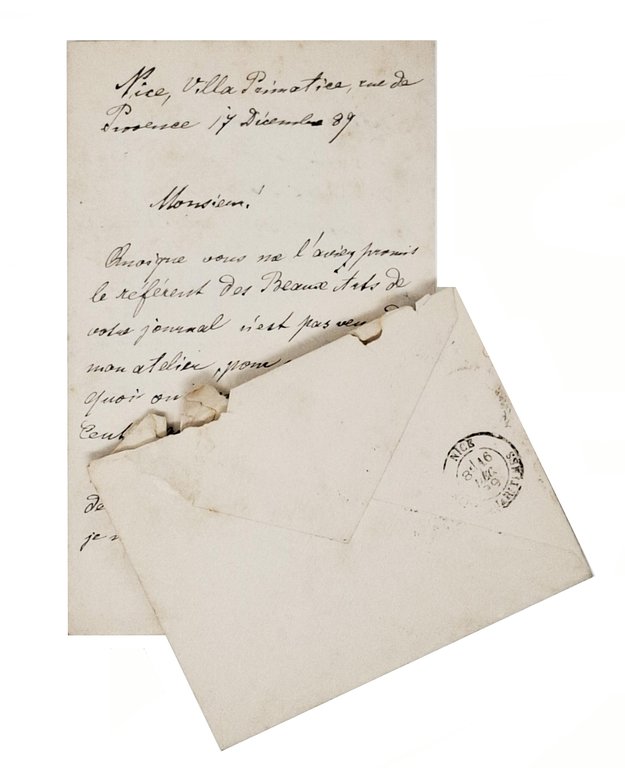 Nice, Villa Primatice, rue de
Provence 17 Décembre 89
Monsieur!
Quoique vous me l'aviez promis
le référent des Beaux Arts de
votre journal n'est pas venu
mon atelier, pour
quoi on
de
je
NICE
8E 16
DEC
89